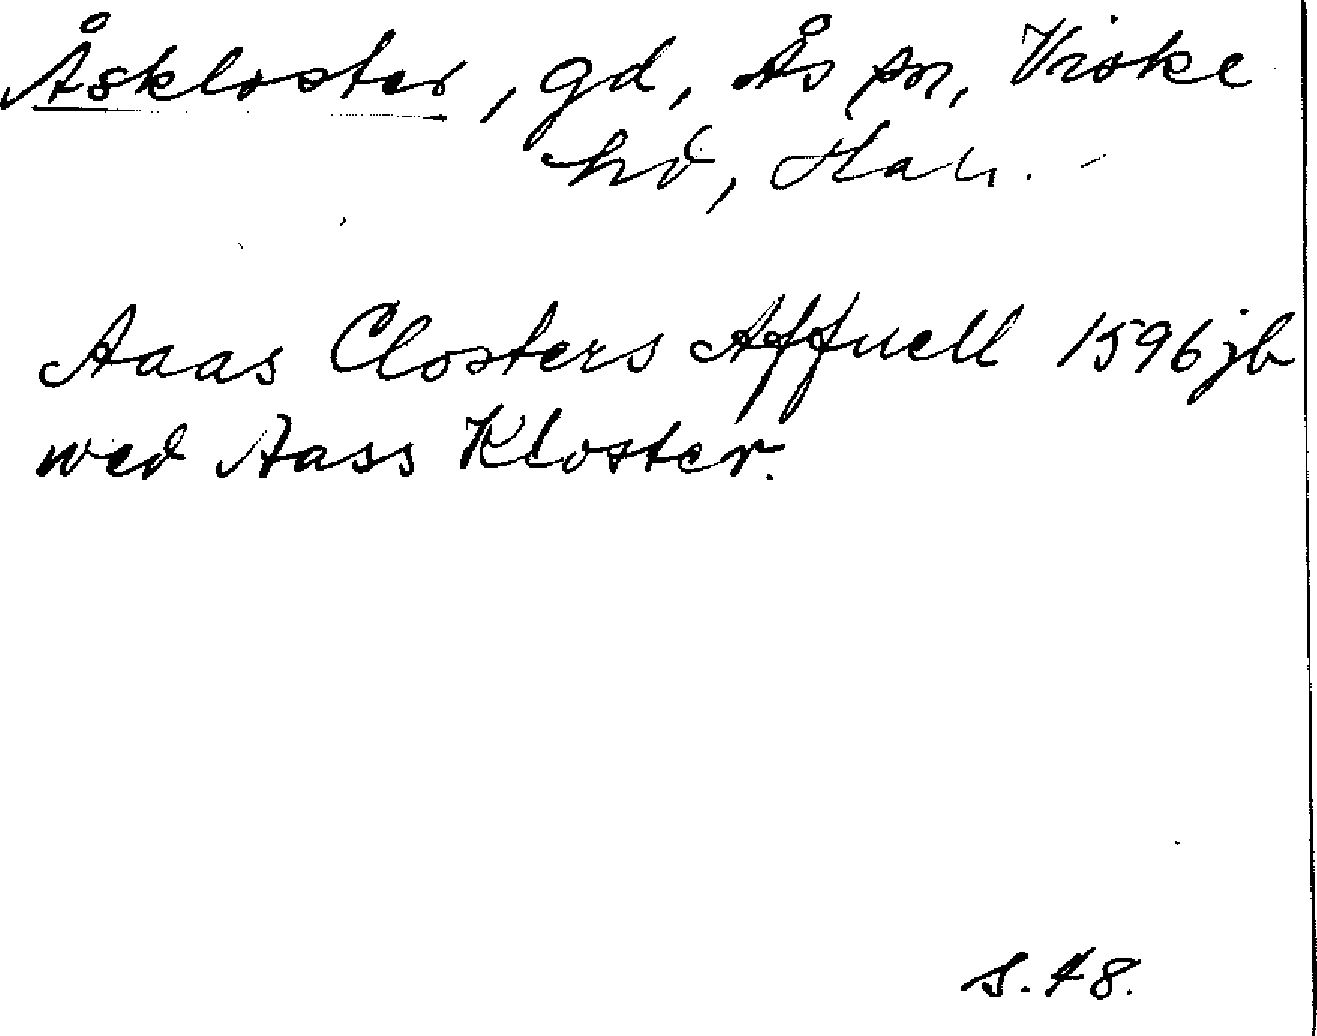 Åskloster, gd, Ås sn, Viske
hd, Hall. -
Aaas Closters Affuell 1596 jb
wed Aass Kloster.
s. 48.